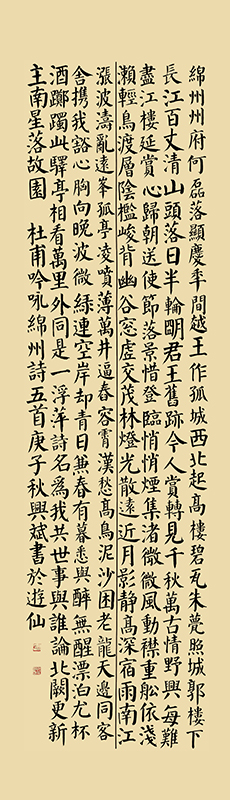 綿州州府何磊落顯慶年間越王作孤城西北起高樓碧瓦朱甍照城郭樓下
長江百丈清山頭落日半輪明君王舊跡今人賞轉見千秋萬古情野興每難
盡江樓延賞心歸朝送使節落景惜登臨悄悄煙集渚微微風動襟重舩依淺
瀨輕鳥渡層陰檻峻背幽谷窓虛交茂林燈光散遠近月影靜高深宿雨南江
漲波濤亂遠峯孤亭凌噴薄萬井逼舂容霄漢愁高鳥泥沙困老龍天邊同客
舍携我豁心胸向晚波微綠連空岸却青日兼春有暮悉與醉無醒漂泊尤杯
酒躑躅此驛亭相看萬里外同是一浮萍詩名爲我共世事與誰論北闕更新
主南星落故園 杜甫吟咏綿州詩五首庚子秋興斌書於遊仙